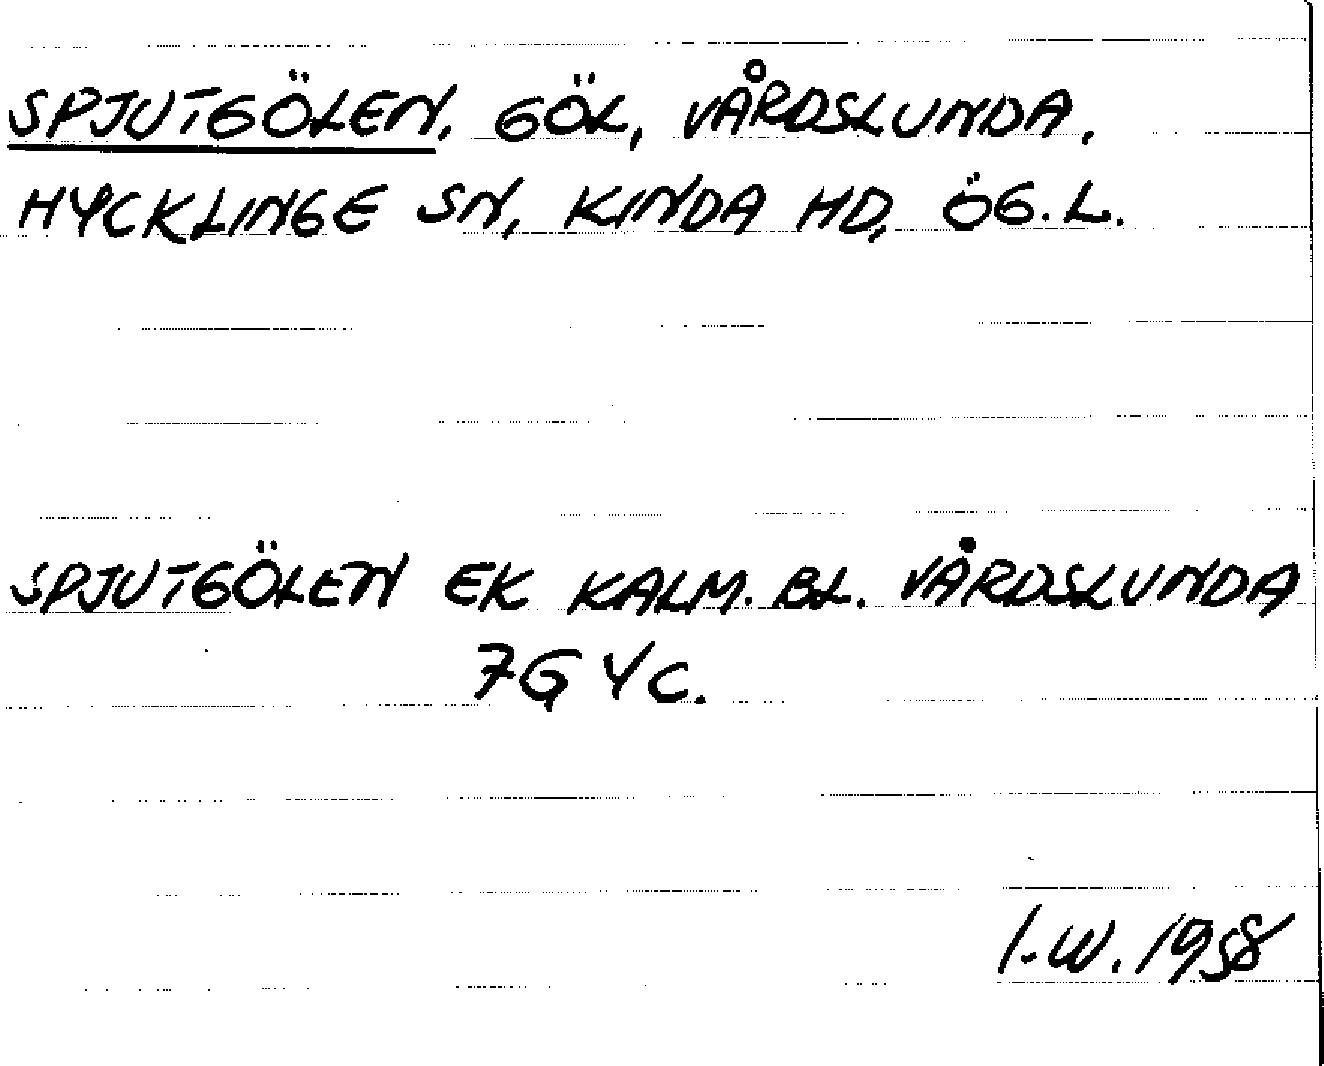 SPJUTGÖLEN, GÖL, VÅRDSLUNDA,
HYCKLINGE SN, KINDA HD, ÖG.L.
SPJUTGÖLEN EK KALM. BL. VÅRDSLUNDA
7G 4C.
I.W. 1958